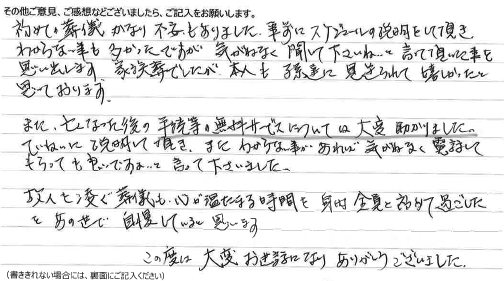 その他ご意見、ご感想などございましたら、ご記入をお願いします。
初めての葬儀 かなり不安もありました。事前にスケジュールの説明をして頂き
わからない事も多かったですが 気がねなく聞いて下さいね…と言って頂いた事を
思い出します 家族葬でしたが、本人も孫達に見送られて嬉しかったと
思っております。
また、亡くなった後の手続等の無料サービスについては大変助かりました。
ていねいに説明して頂き、またわからない事があれば気がねなく電話して
もらっても良いですよ…と言って下さいました。
故人を 葬儀も、心が温たまる時間を身内全員と初めて過ごした
とあの世で自慢していると思います
この度は大変お世話になりありがとうございました。
(書ききれない場合には、裏面にご記入ください)